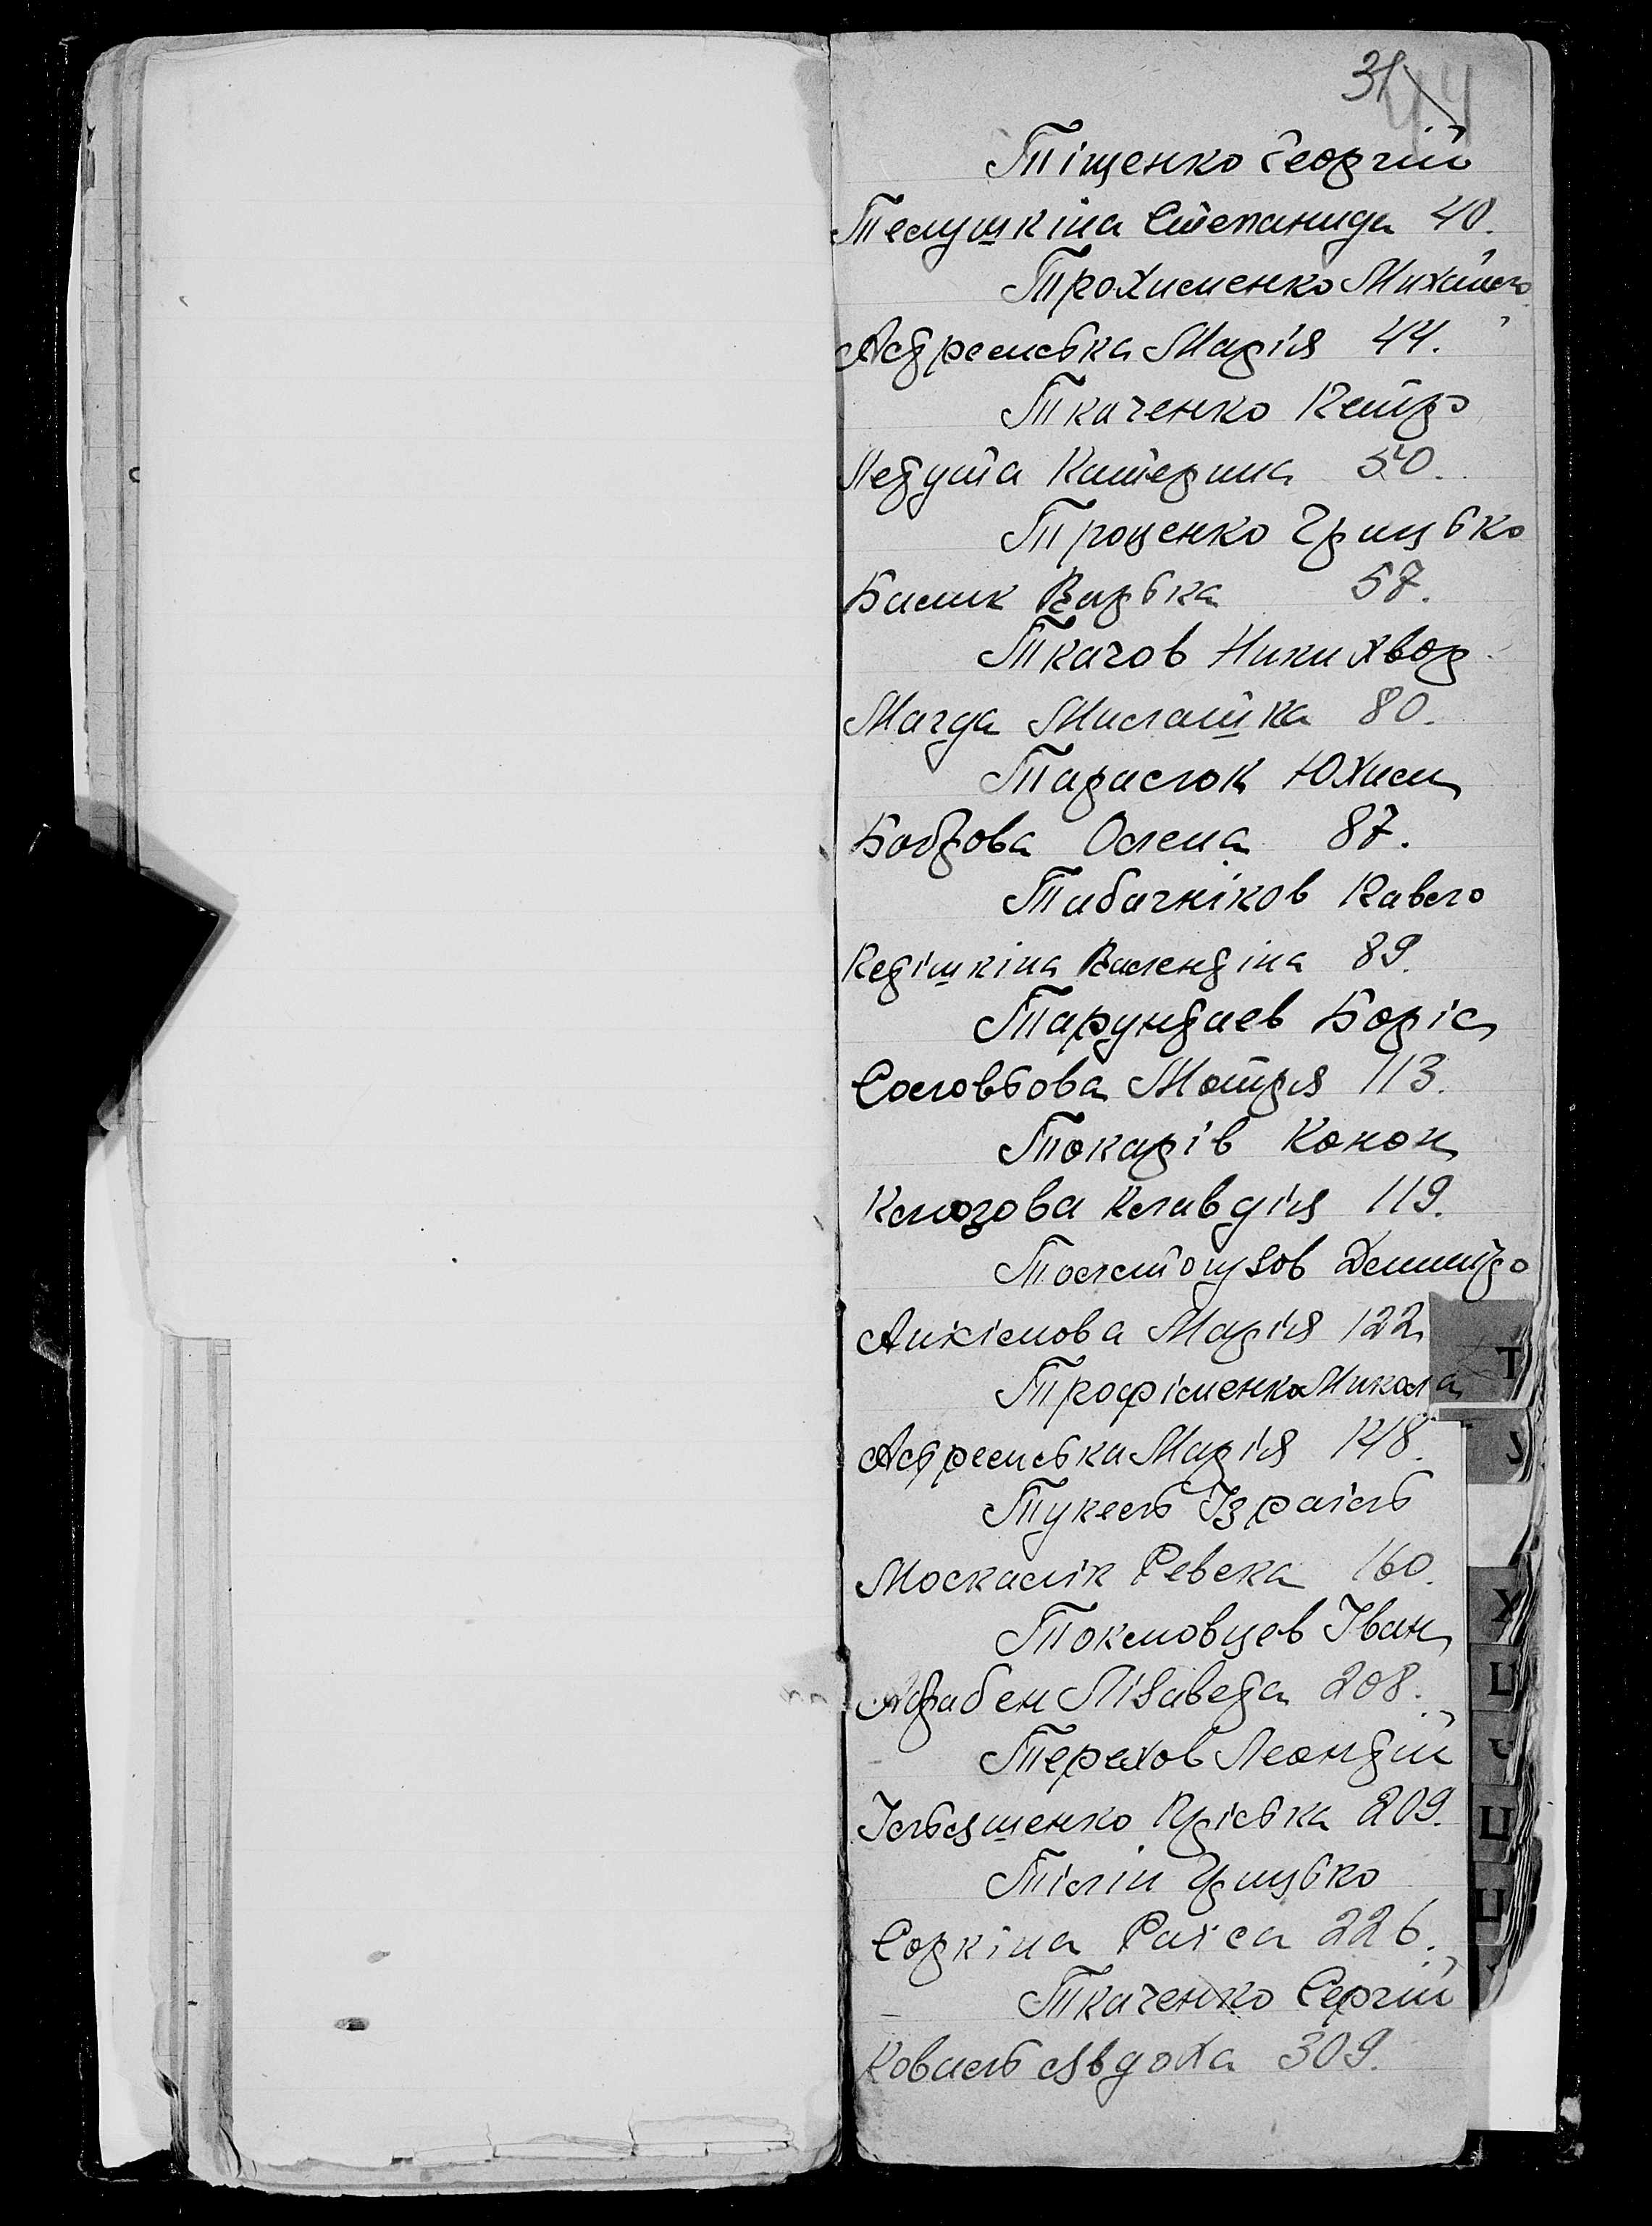 31
44
Тіщенко Георгій
Телушкіна Степанида 40.
Трохименко Михайло
Астремська Марія 44.
Ткаченко Петро
Педута Катерина 50.
Троценко Грицько
Балик Варька 57.
Ткачов Никихвор
Магда Милашка 80.
Тараслок Юхим
Боброва Олена 87.
Табачніков Павло
Редішкіна Валентіна 89.
Тарунтаев Боріс
Соловьова Мотря 113.
Токарів Конон
Клюзова Клавдія 119.
Толстоузов Дмитро
Анкімова Марія 122
Трофіменко Микола
Астремська Марія 148.
Тукель Ізраіль
Москалік Ревека 160.
Токмовцев Іван
Лізавета 208.
Терехов Леонтій
Ільяшенко Пріська 209.
Тілін Грицько
Соркіна Раіса 226.
Ткаченко Сергій
Коваль Явдоха 309.
Т
Х
Ц